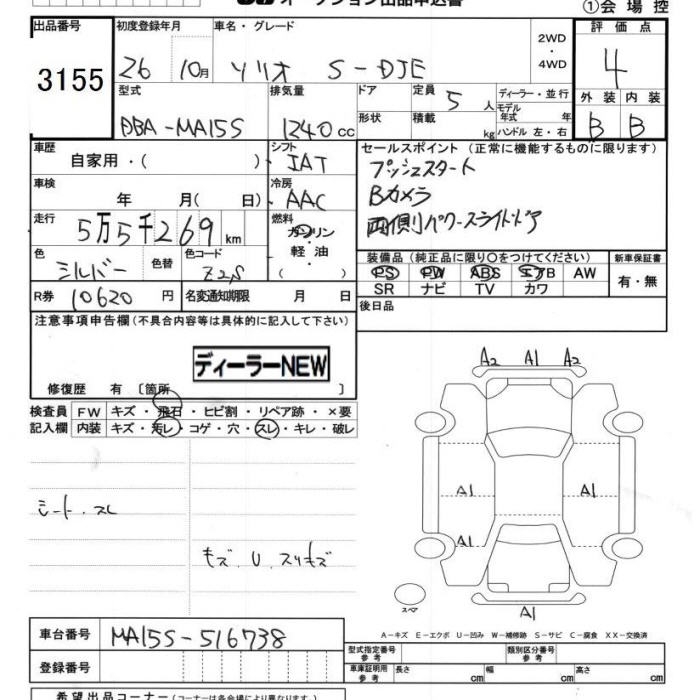 オークション出品申込書
①会場控
出品番号 初度登録年月 車名・グレード 評価点
3155 26 10月 ソリオ S-DJE 2WD・4WD 4
型式 排気量 ドア 定員 5 人 ディーラー・並行 外装 内装
DBA-MA15S 1240cc 形状 積載 kg モデル年式 年 ハンドル 左・右 B B
車歴 自家用・( ) シフト IAT セールスポイント (正常に機能するものに限ります)
プッシュスタート
車検 年 月( 日) 冷房 AAC Bカメラ
走行 5万5千269 km 燃料 ガソリン・軽油・( ) 両側パワースライドドア
色 シルバー 色替 色コード Z2S 装備品(純正品に限り○をつけてください) 新車保証書
PS PW ABS エアB AW 有・無
SR ナビ TV カワ
R券 10620 円 名変通知期限 月 日 後日品
注意事項申告欄(不具合内容等は具体的に記入して下さい)
ディーラーNEW
修復歴 有 〔箇所 〕
検査員 FW キズ・飛石・ヒビ割・リペア跡・×要
記入欄 内装 キズ・汚レ・コゲ・穴・スレ・キレ・破レ
A2 A1 A2
A1 A1
シート.スレ
A1
キズ、U、スリキズ
スペア
A1
A-キズ E-エクボ U-凹み W-補修跡 S-サビ C-腐食 XX-交換済
車台番号 MA15S-516738
型式指定番号 参考 類別区分番号 参考
登録番号
車庫証明用 参考 長さ cm 幅 cm 高さ cm
希望出品コーナー(各会場により異なります。)